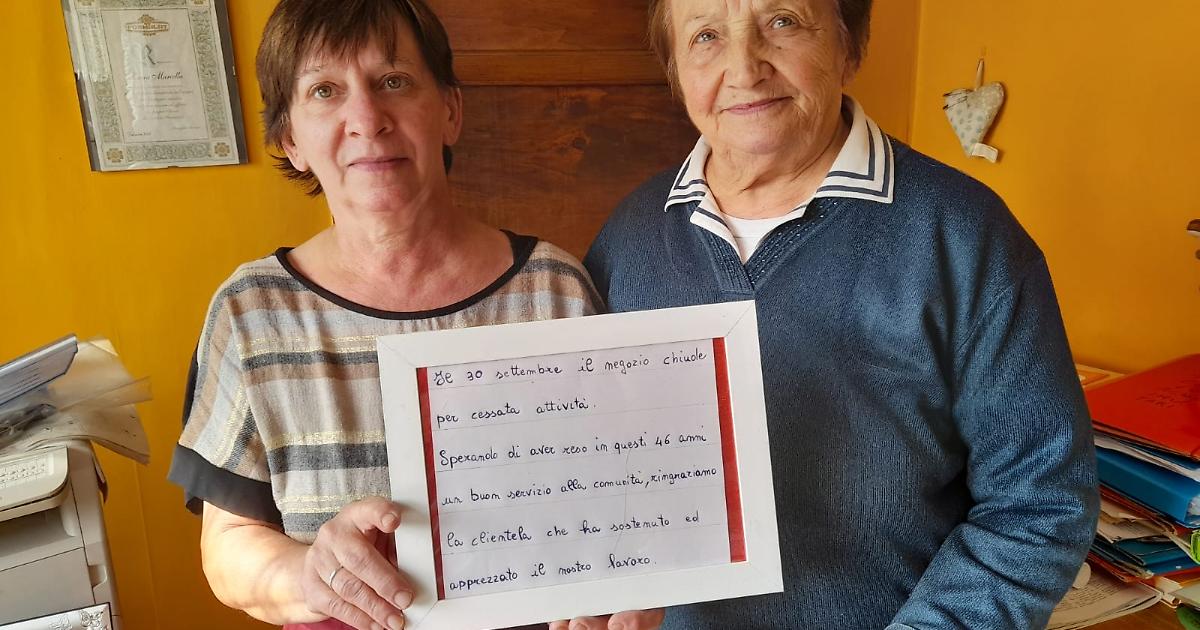 FORMALBA
Il 30 settembre il negozio chiude
per cessata attività.
Sperando di aver reso in questi 46 anni
un buon servizio alla comunità, ringraziamo
la clientela che ha sostenuto ed
apprezzato il nostro lavoro.